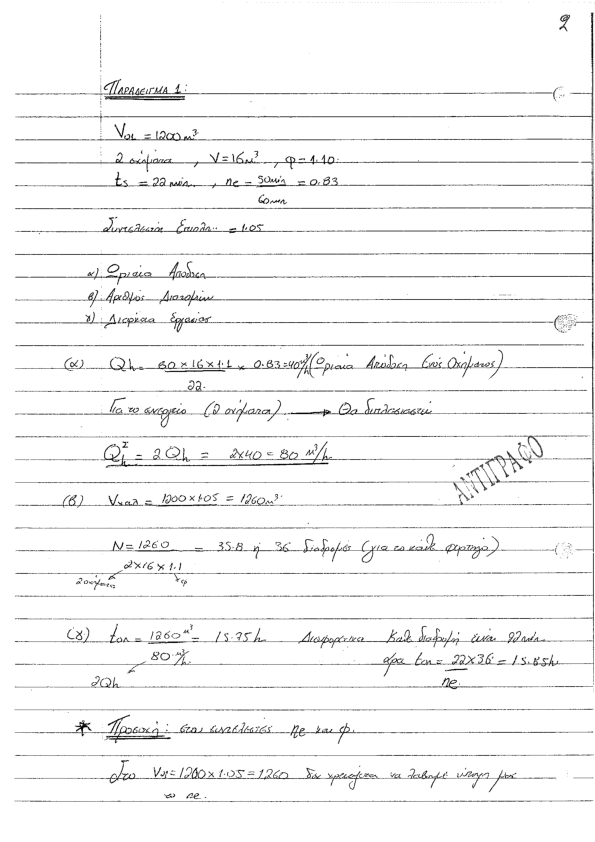 2
ΠΑΡΑΔΕΙΓΜΑ 1:
Vολ = 1200 m³
2 οχήματα , V = 16 m³ , φ = 1.10.
ts = 22 min. , ne = 50 min / 60 min = 0.83
Συντελεστή Επιπλ.. = 1.05
α) Ωριαία Απόδοση
β) Αριθμός Διαδρομών
γ) Διάρκεια Εργασίας
(α) Qh = 60 × 16 × 1.1 / 22 × 0.83 = 40 m³/h (Ωριαία Απόδοση Ενός Οχήματος)
Για το συνεργείο (2 οχήματα) → Θα διπλασιαστεί
QhΣ = 2Qh = 2×40 = 80 m³/h.
ΑΝΤΙΓΡΑΦΟ
(β) Vχαλ = 1200 × 1.05 = 1260 m³.
N = 1260 / 2×16×1.1 = 35.8 ή 36 διαδρομές (για το κάθε φορτηγό)
2 οχήματα φ
(γ) tολ = 1260 m³ / 80 m³/h = 15.75 h Διαφορετικά Κάθε διαδρομή είναι 22 min.
2Qh άρα tολ = 22×36 / ne = 15.85 h.
* Προσοχή: στους συντελεστές ne και φ.
Στο Vολ = 1200 × 1.05 = 1260 δεν χρειάζεται να λάβουμε υπόψη μας
το ne.